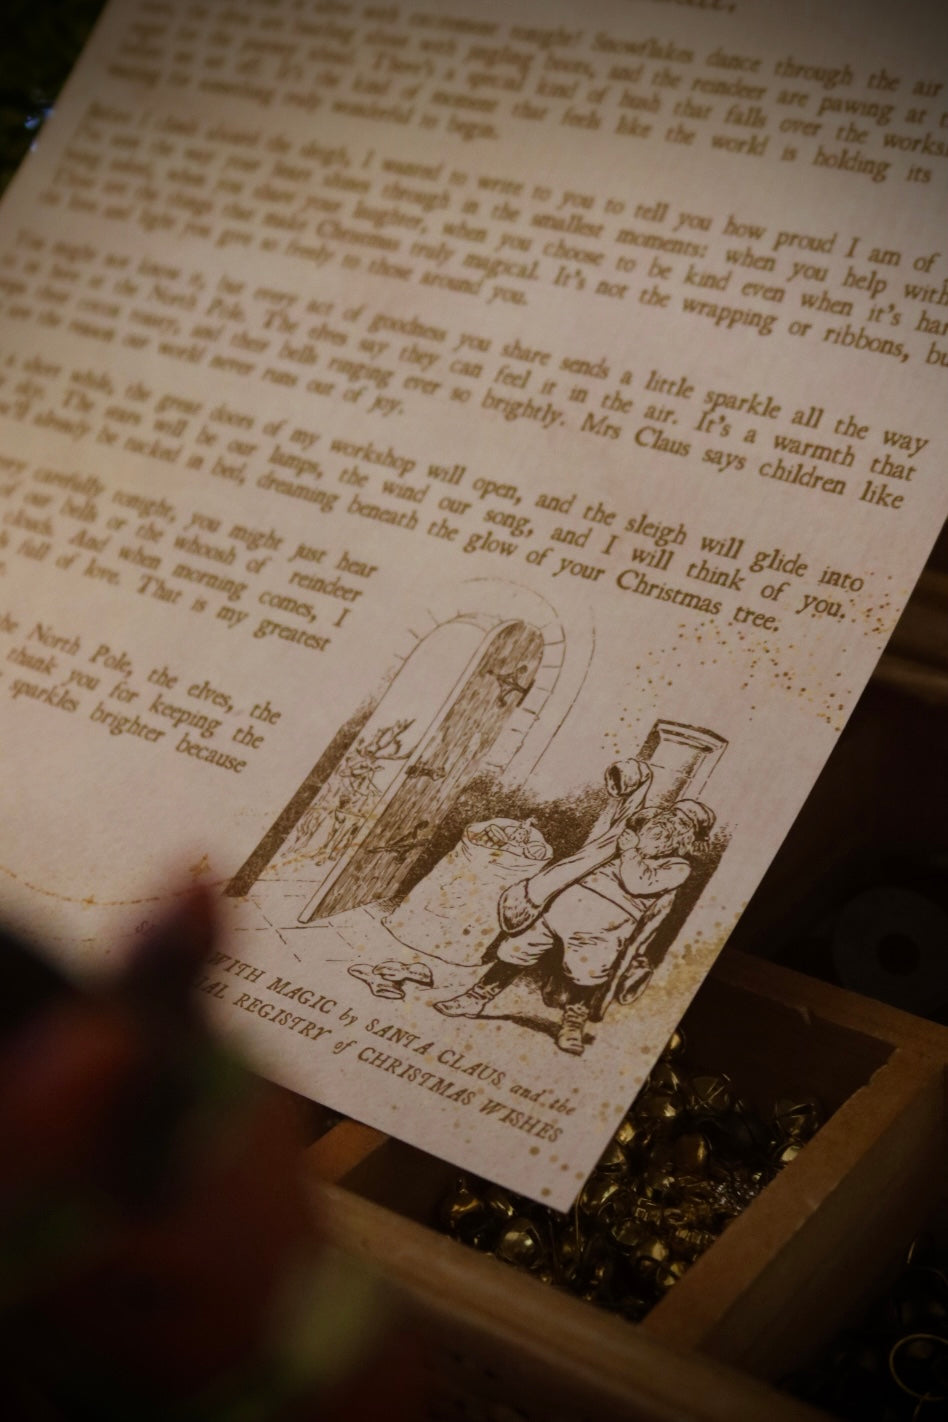 is alive with excitement tonight! Snowflakes dance through the air
are pawing at
for the journey ahead. There's a special kind of hush that falls over the
as we set off. It's the kind of moment that feels like the world is holding its
waiting for something truly wonderful to begin.
Before I climb aboard the sleigh, I wanted to write to you to tell you how proud I am of
I've seen the way your heart shines through in the smallest moments: when you help with
being asked, when you share your laughter, when you choose to be kind even when it's
These are the things that make Christmas truly magical. It's not the wrapping or ribbons,
the love and light you give so freely to those around you.
You might not know it, but every act of goodness you share sends a little sparkle all the way
to us here at the North Pole. The elves say they can feel it in the air. It's a warmth that
their cocoa toasty, and their bells ringing ever so brightly. Mrs Claus says children like
are the reason our world never runs out of joy.
a short while, the great doors of my workshop will open, and the sleigh will glide into
sky. The stars will be our lamps, the wind our song, and I will think of you.
already be tucked in bed, dreaming beneath the glow of your Christmas tree.
carefully tonight, you might just hear
of our bells or the whoosh of reindeer
clouds. And when morning comes, I
full of love. That is my greatest
the North Pole, the elves, the
thank you for keeping the
sparkles brighter because
WITH MAGIC by SANTA CLAUS and the
REGISTRY of CHRISTMAS WISHES